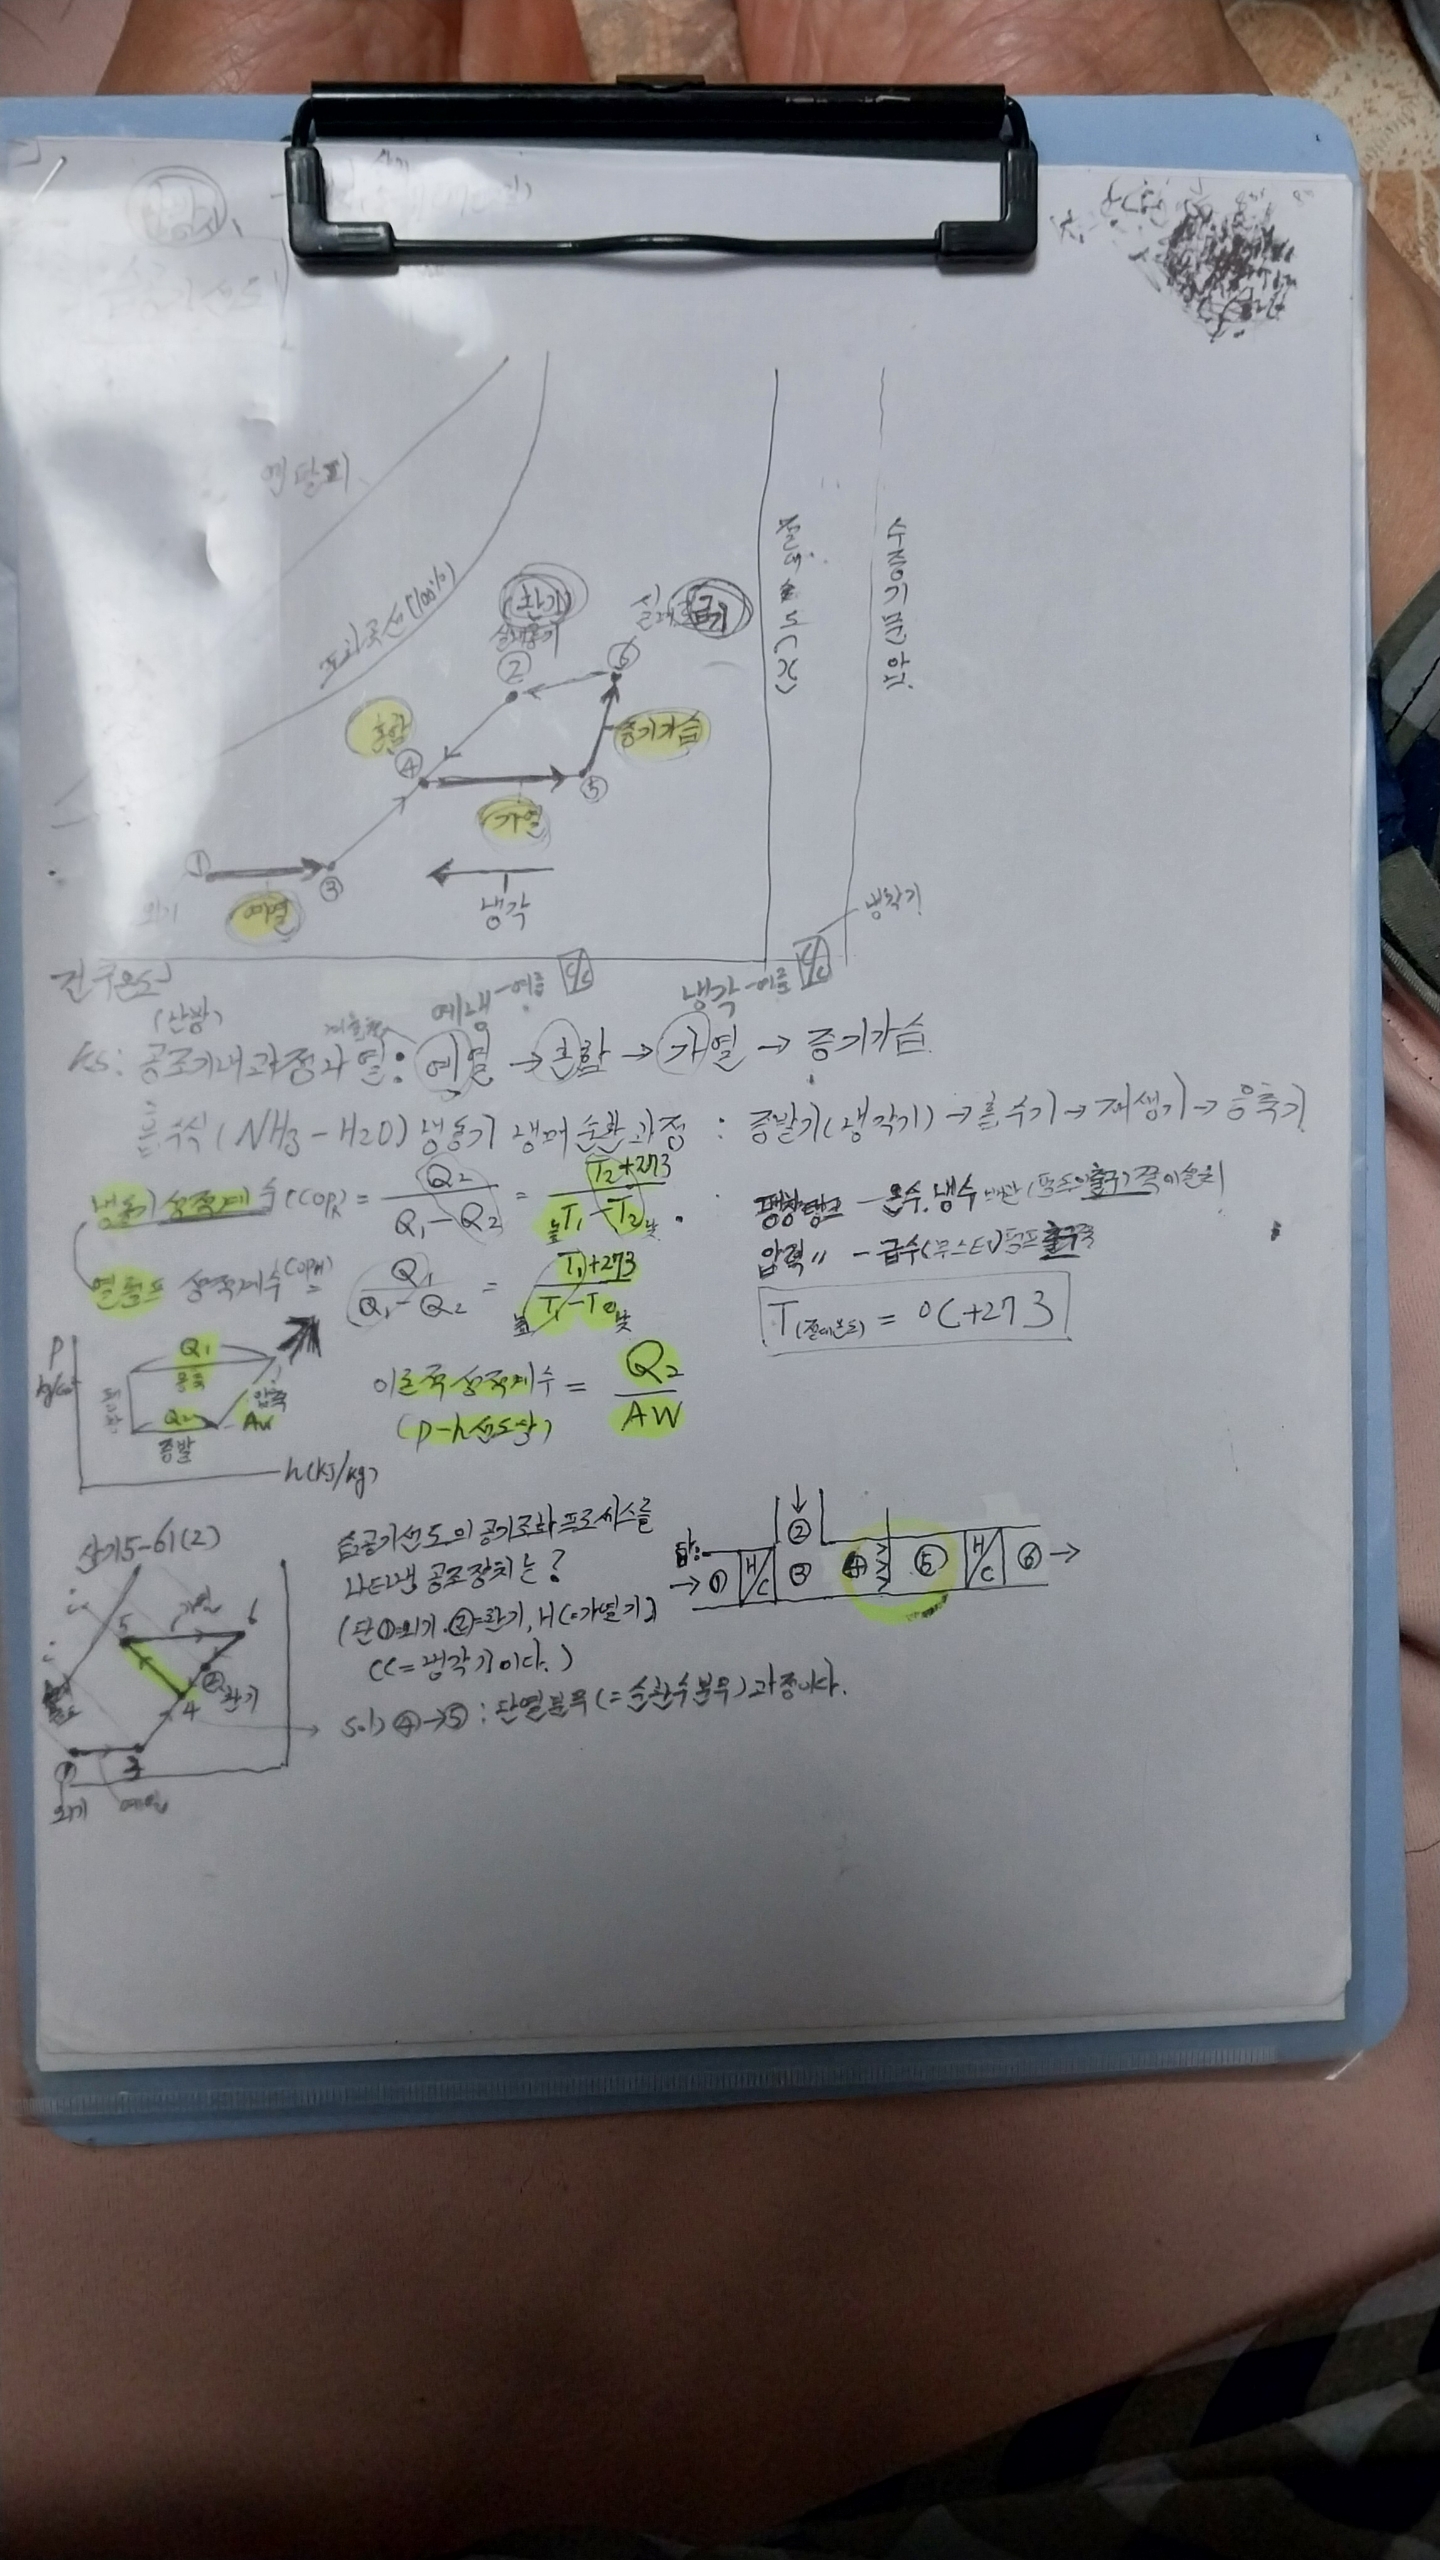 엔탈피
포화곡선(100%)
환기
급기
②
⑥
혼합
증기가습
④
⑤
가열
①
③
예열
냉각
외기
절대습도(x)
수증기분압
냉각기
건구온도
예냉-여름 C/C
냉각-여름 C/C
(난방)
공조기내과정과열: 예열 → 혼합 → 가열 → 증기가습
흡수식(NH3-H2O) 냉동기 냉매순환과정 : 증발기(냉각기) → 흡수기 → 재생기 → 응축기
냉동기 성적계수(COPR) = Q2 / Q1 - Q2 = T2+273 / T1 - T2
팽창탱크 - 온수.냉수
압력 〃 - 급수(부스터)펌프출구측
열펌프 성적계수(COPH) = Q1 / Q1 - Q2 = T1+273
T(절대온도) = ℃+273
이론적성적계수 = Q2 / AW
(p-h선도상)
P
Q1
응축
압축
AW
Q2
증발
h(kJ/kg)
산기5-61(2)
습공기선도의 공기조화프로세스를
나타낸 공조장치는?
(단①=외기.②=환기, HC=가열기,
CC=냉각기이다.)
sol) ④→⑤ : 단열분무(=순환수분무)과정이다.
답:
→ ① H/C ② ③ ④ ⑤ H/C ⑥ →
5
가열
6
②환기
4
①
3
외기
예열